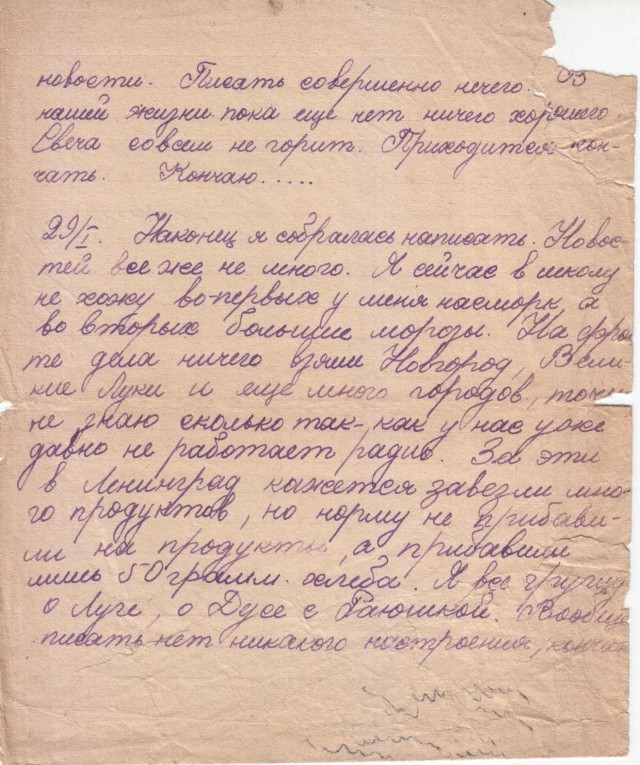 новости. Писать совершенно нечего. О
нашей жизни пока еще нет ничего хорошего.
Свеча совсем не горит. Приходится кон-
чать. Кончаю.....
29/I. Наконец я собралась написать. Новос-
тей все же не много. Я сейчас в школу
не хожу во-первых у меня насморк, а
во вторых большие морозы. На фро
те дела ничего взяли Новгород, Вели
кие Луки и еще много городов, точн
не знаю сколько так-как у нас уже
давно не работает радио. За эти
в Ленинград кажется завезли мно-
го продуктов, но норму не прибави-
ли на продукты, а прибавили
лишь 50 грамм. хлеба. Я все грущу
о Луге, о Дусе с Раюшкой. Вообще
писать нет никакого настроения, кончаю